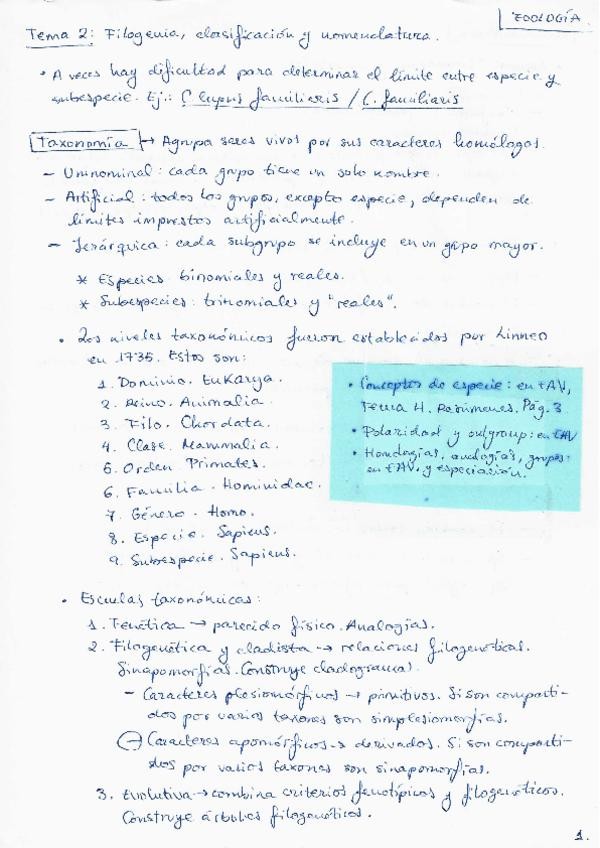 ZOOLOGÍA
Tema 2: Filogenia, clasificación y nomenclatura.
· A veces hay dificultad para determinar el límite entre especie y
subespecie. Ej.: C. lupus familiaris / C. familiaris
Taxonomía → Agrupa seres vivos por sus caracteres homólogos.
- Uninominal: cada grupo tiene un solo nombre.
- Artificial: todos los grupos, excepto especie, dependen de
límites impuestos artificialmente.
- Jerárquica: cada subgrupo se incluye en un grupo mayor.
* Especies: binomiales y reales.
* Subespecies: trinomiales y "reales".
· Los niveles taxonómicos fueron establecidos por Linneo
en 1735. Estos son:
1. Dominio. Eukarya.
2. Reino. Animalia.
3. Filo. Chordata.
4. Clase. Mammalia.
5. Orden. Primates.
6. Familia. Hominidae.
7. Género. Homo.
8. Especie. Sapiens.
9. Subespecie. Sapiens.
· Conceptos de especie: en EAV,
Tema 4. Resúmenes. Pág. 3
· Polaridad y outgroup: en EAV
· Homologías, analogías, grupos:
en EAV, y especiación.
· Escuelas taxonómicas:
1. Fenética → parecido físico. Analogías.
2. Filogenética y cladista → relaciones filogenéticas.
Sinapomorfías. Construye cladogramas.
- Caracteres plesiomórficos → primitivos. Si son comparti-
dos por varios taxones son simplesiomorfías.
- Caracteres apomórficos → derivados. Si son comparti-
dos por varios taxones son sinapomorfías.
3. Evolutiva → combina criterios fenotípicos y filogenéticos.
Construye árboles filogenéticos.
1.